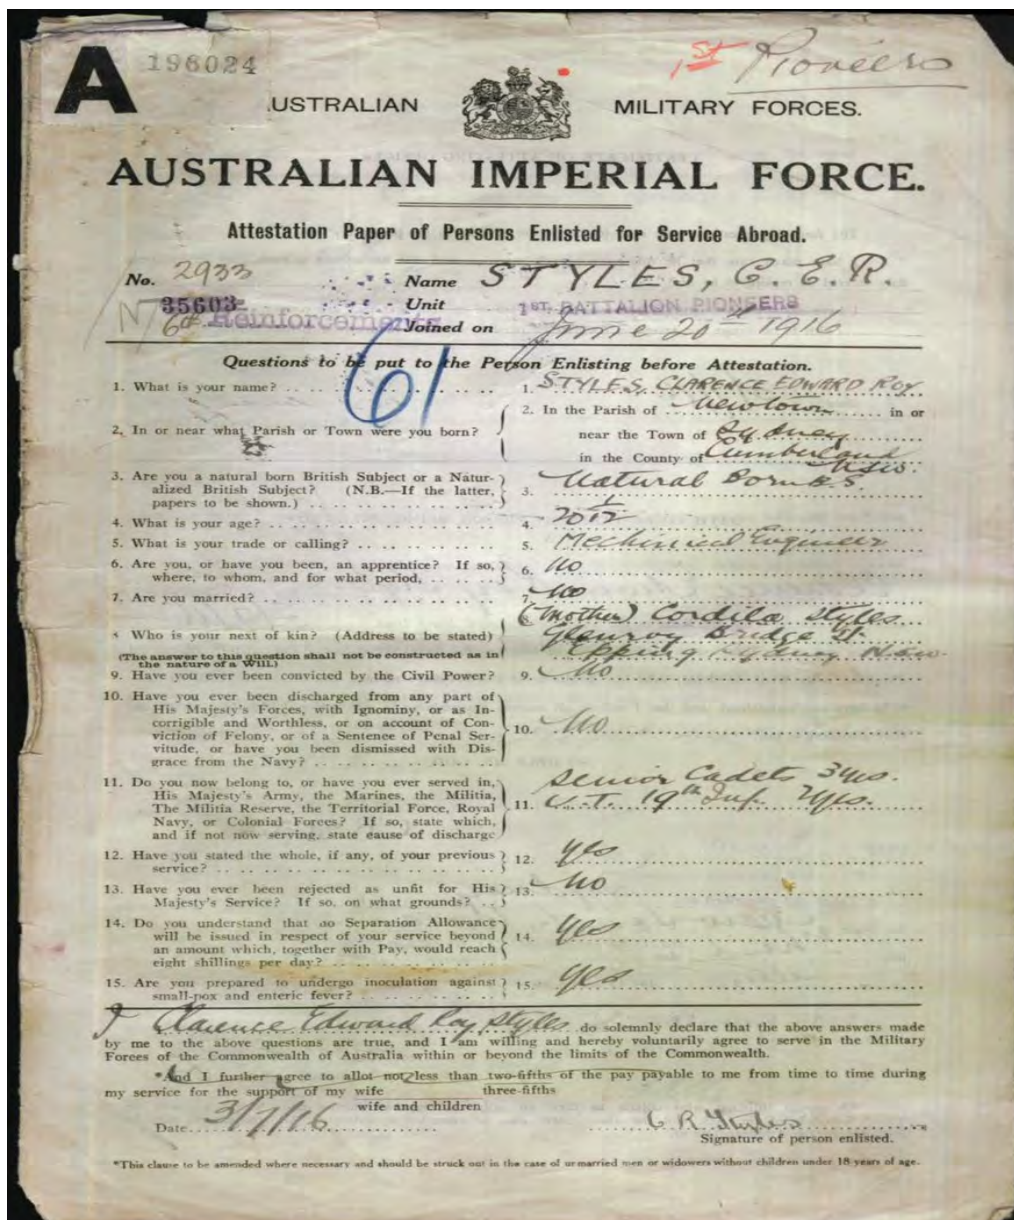 A 196024
1st Pioneers
USTRALIAN MILITARY FORCES.
AUSTRALIAN IMPERIAL FORCE.
Attestation Paper of Persons Enlisted for Service Abroad.
No. 2933 Name STYLES, C. E. R.
35603 Unit 1ST. BATTALION PIONEERS
N 6th Reinforcements Joined on June 20th 1916
Questions to be put to the Person Enlisting before Attestation.
61
1. What is your name? 1. STYLES, CLARENCE EDWARD ROY
2. In or near what Parish or Town were you born?
2. In the Parish of Newtown in or
near the Town of Sydney
in the County of Cumberland
NSW.
3. Are you a natural born British Subject or a Natur-
alized British Subject? (N.B.—If the latter,
papers to be shown.) 3. Natural Born B.S.
4. What is your age? 4. 20 1/12
5. What is your trade or calling? 5. Mechinical Engineer
6. Are you, or have you been, an apprentice? If so,
where, to whom, and for what period, 6. No
7. Are you married? 7. No
Who is your next of kin? (Address to be stated)
8. (Mother) Cordila Styles
Glenroy Bridge St.
Epping Sydney NSW.
(The answer to this question shall not be constructed as in
the nature of a Will.)
9. Have you ever been convicted by the Civil Power? 9. No
10. Have you ever been discharged from any part of
His Majesty's Forces, with Ignominy, or as In-
corrigible and Worthless, or on account of Con-
viction of Felony, or of a Sentence of Penal Ser-
vitude, or have you been dismissed with Dis-
grace from the Navy? 10. No
11. Do you now belong to, or have you ever served in,
His Majesty's Army, the Marines, the Militia,
The Militia Reserve, the Territorial Force, Royal
Navy, or Colonial Forces? If so, state which,
and if not now serving, state cause of discharge
11. Senior Cadets 3yrs.
U.T. 19th Inf. 2yrs.
12. Have you stated the whole, if any, of your previous
service? 12. Yes
13. Have you ever been rejected as unfit for His
Majesty's Service? If so, on what grounds? 13. No
14. Do you understand that no Separation Allowance
will be issued in respect of your service beyond
an amount which, together with Pay, would reach
eight shillings per day? 14. Yes
15. Are you prepared to undergo inoculation against
small-pox and enteric fever? 15. Yes
I Clarence Edward Roy Styles do solemnly declare that the above answers made
by me to the above questions are true, and I am willing and hereby voluntarily agree to serve in the Military
Forces of the Commonwealth of Australia within or beyond the limits of the Commonwealth.
*And I further agree to allot not less than two-fifths of the pay payable to me from time to time during
three-fifths
my service for the support of my wife
wife and children
Date 3/7/16 C R Styles
Signature of person enlisted.
*This clause to be amended where necessary and should be struck out in the case of unmarried men or widowers without children under 18 years of age.